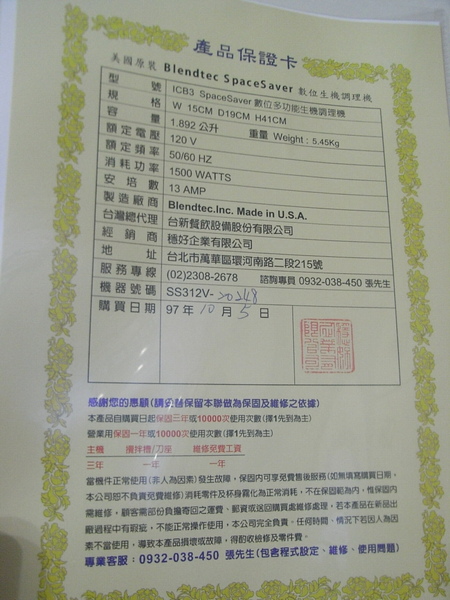 產品保證卡
美國原裝 Blendtec SpaceSaver 數位生機調理機
型號 ICB3 SpaceSaver 數位多功能生機調理機
規格 W 15CM D19CM H41CM
容量 1.892 公升 重量 Weight : 5.45Kg
額定電壓 120 V
額定頻率 50/60 HZ
消耗功率 1500 WATTS
安培數 13 AMP
製造廠商 Blendtec.Inc. Made in U.S.A.
台灣總代理 台新餐飲設備股份有限公司
經銷商 穗好企業有限公司
地址 台北市萬華區環河南路二段215號
服務專線 (02)2308-2678 諮詢專員 0932-038-450 張先生
機器號碼 SS312V-20248
購買日期 97年 10 月 5 日
感謝您的惠顧(請妥替保留本聯做為保固及維修之依據)
本產品自購買日起保固三年或10000次使用次數(擇1先到為主)
營業用保固一年或10000次使用次數(擇1先到為主)
主機 攪拌槽/刀座 維修免費工資
三年 一年 一年
當機件正常使用(非人為因素)發生故障，保固內可享免費售後服務(如無填寫購買日期，
本公司恕不負責免費維修)消耗零件及杯身霧化為正常消耗，不在保固範為內，惟保固內
需維修，顧客需部份負擔寄回之運費。郵資或送回購買處維修處理，若本產品在新品出
廠過程中有瑕疵，不能正常操作使用，本公司完全負責。任何時間、情況下若因人為因
素不當使用，導致本產品損壞或故障，得酌收檢修及零件費。
專業客服：0932-038-450 張先生(包含程式設定、維修、使用問題)